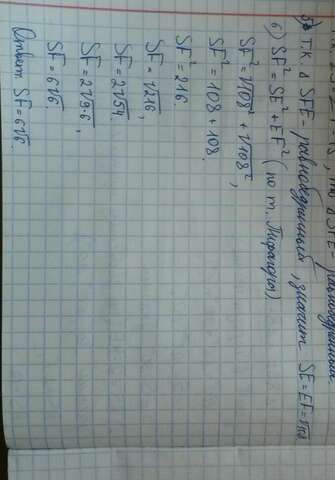 5) т.к Δ SFE - равнобедренный, значит SE = EF = √108
6) SF² = SE² + EF² (по т. Пифагора)
SF² = √108² + √108²,
SF² = 108 + 108.
SF² = 216.
SF = √216,
SF = 2√54.
SF = 2√9·6,
SF = 6√6.
Ответ SF = 6√6.